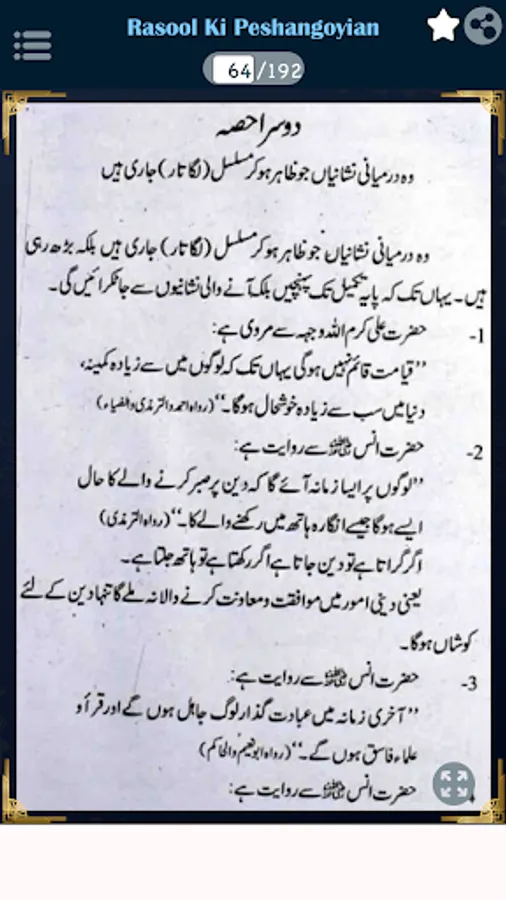 Rasool Ki Peshangoyian
64/192
دوسرا حصہ
وہ درمیانی نشانیاں جو ظاہر ہو کر مسلسل (لگاتار) جاری ہیں
وہ درمیانی نشانیاں جو ظاہر ہو کر مسلسل (لگاتار) جاری ہیں بلکہ بڑھ رہی
ہیں۔ یہاں تک کہ پایہ تکمیل تک پہنچیں بلکہ آنے والی نشانیوں سے جا ٹکرائیں گی۔
1- حضرت علی کرم اللہ وجہہ سے مروی ہے:
”قیامت قائم نہیں ہوگی یہاں تک کہ لوگوں میں سے زیادہ کمینہ،
دنیا میں سب سے زیادہ خوشحال ہوگا۔“ (رواہ احمد والترمذی والضیاء)
2- حضرت انس ﷺ سے روایت ہے:
”لوگوں پر ایسا زمانہ آئے گا کہ دین پر صبر کرنے والے کا حال
ایسے ہوگا جیسے انگارہ ہاتھ میں رکھنے والے کا۔“ (رواہ الترمذی)
اگر گراتا ہے تو دین جاتا ہے اگر رکھتا ہے تو ہاتھ جلتا ہے۔
یعنی دینی امور میں موافقت و معاونت کرنے والا نہ ملے گا تنہا دین کے لئے
کوشاں ہوگا۔
3- حضرت انس ﷺ سے روایت ہے:
”آخری زمانہ میں عبادت گذار لوگ جاہل ہوں گے اور قرأ و
علماء فاسق ہوں گے۔“ (رواہ ابو نعیم والحاکم)
حضرت انس ﷺ سے روایت ہے: